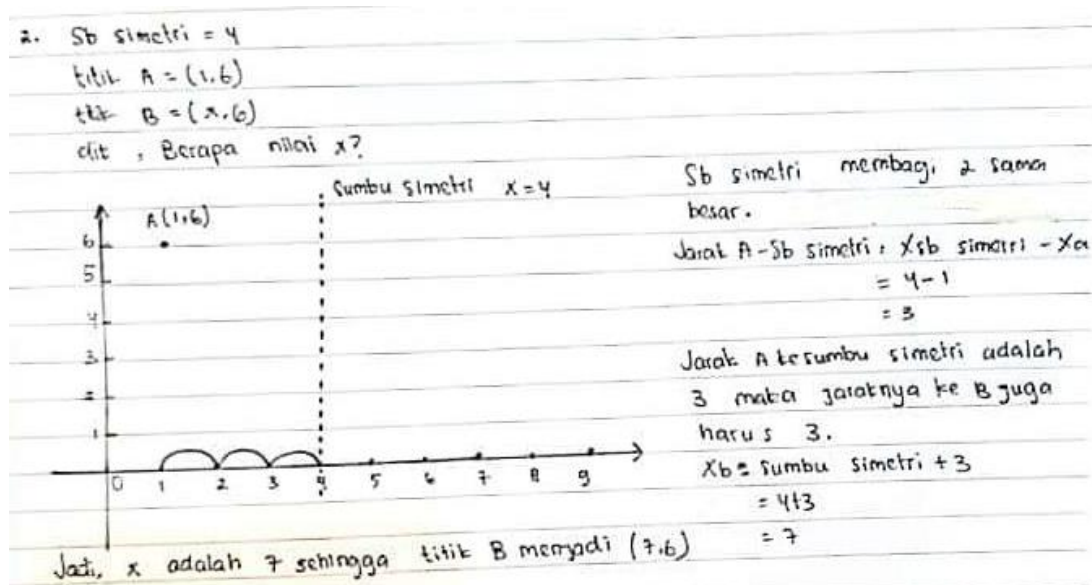 2. Sb simetri = 4
titik A = (1,6)
titik B = (x,6)
dit, Berapa nilai x?
Sumbu simetri x = 4
A(1,6)
6
5
4
3
2
1
0 1 2 3 4 5 6 7 8 9
Sb simetri membagi 2 sama
besar.
Jarak A-Sb simetri : Xsb simetri - Xa
= 4-1
= 3
Jarak A kesumbu simetri adalah
3 maka jaraknya ke B juga
harus 3.
Xb = Sumbu simetri + 3
= 4+3
= 7
Jadi, x adalah 7 sehingga titik B menjadi (7,6)